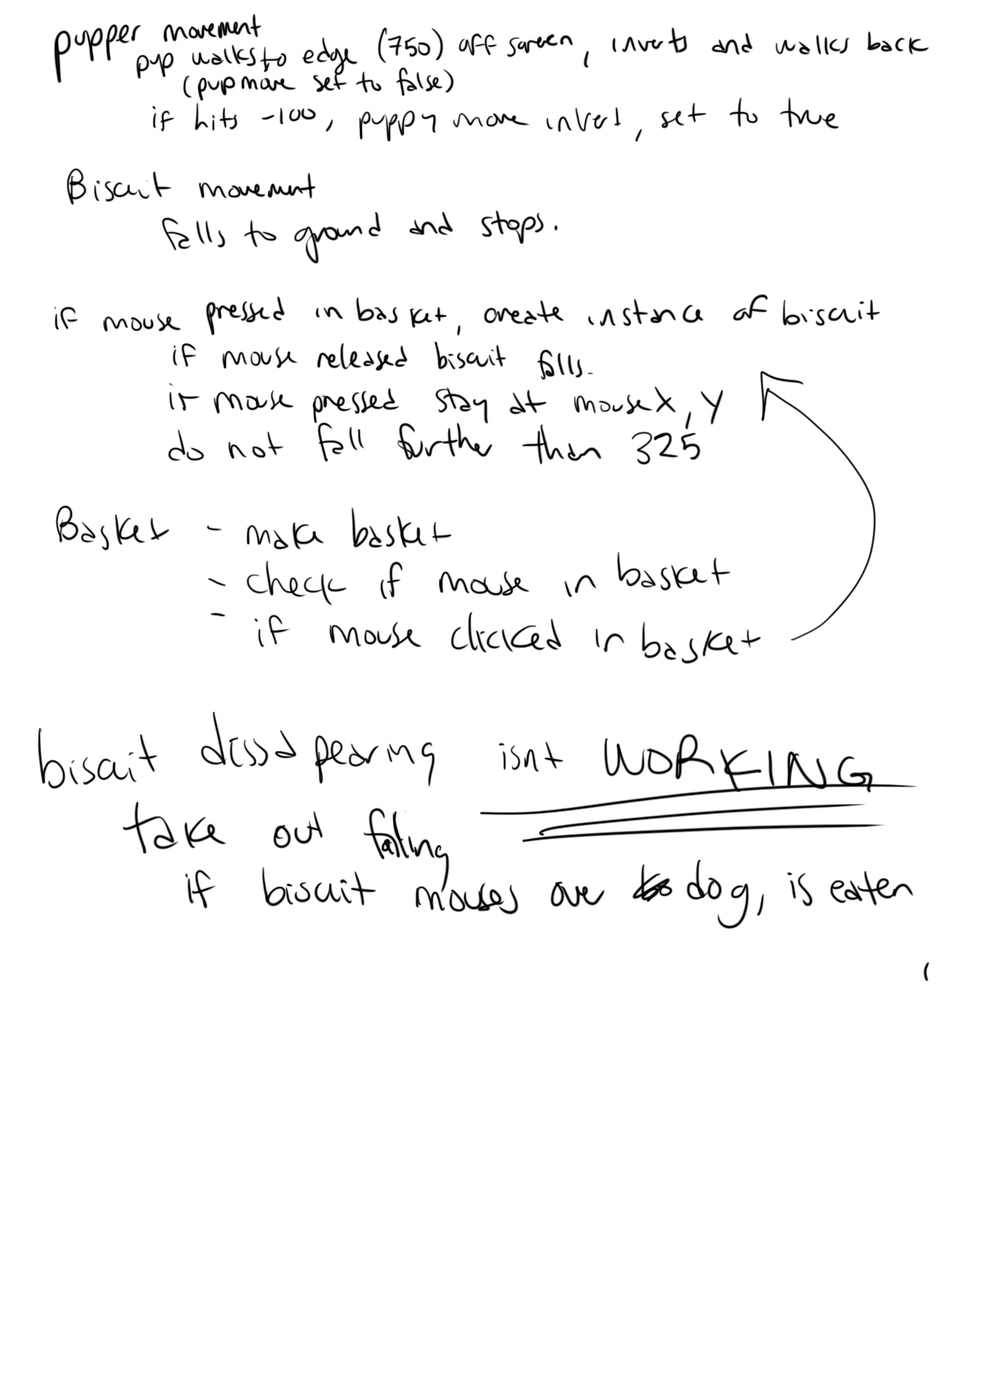 pupper movement
pup walks to edge (750) off screen, inverts and walks back
(pupmove set to false)
if hits -100, puppy move invert, set to true
Biscuit movement
falls to ground and stops.
if mouse pressed in basket, create instance of biscuit
if mouse released biscuit falls.
if mouse pressed stay at mouseX, Y
do not fall further than 325
Basket - make basket
- check if mouse in basket
- if mouse clicked in basket
biscuit dissapearing isnt WORKING
take out falling
if biscuit mouses over dog, is eaten
(